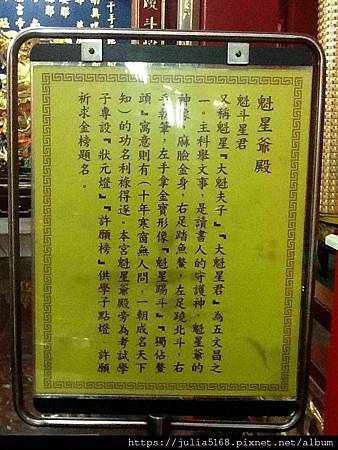 魁星爺殿
魁斗星君
又稱魁星『大魁夫子』『大魁星君』為五文昌之
一。主科舉文事，是讀書人的守護神，魁星爺的
神像，麻臉金身，右足踏魚鰲，左足蹺北斗，右
手執筆，左手拿金寶形像『魁星踢斗』『獨佔鰲
頭』寓意則有（十年寒窗無人問，一朝成名天下
知）的功名利祿得逐。本宮魁星爺殿旁為考試學
子專設『狀元燈』『許願榜』供學子點燈、許願
祈求金榜題名。
https://julia5168.pixnet.net/album